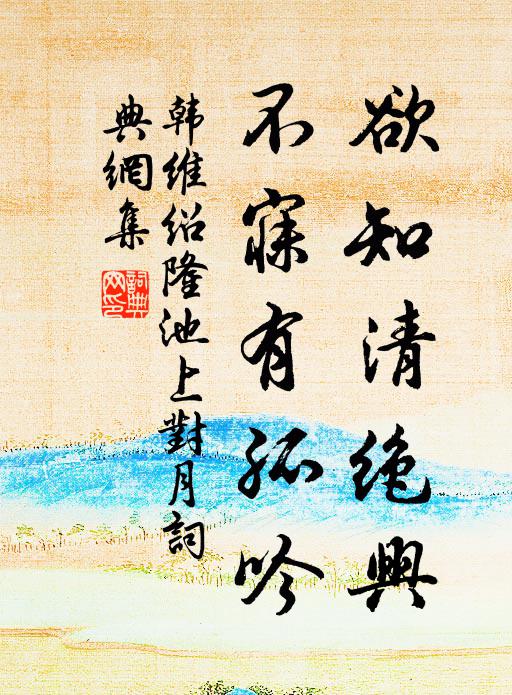 欲知清绝興
不寐有孤吟
韩維绍隆池上對月詞
典網集
詞典網印